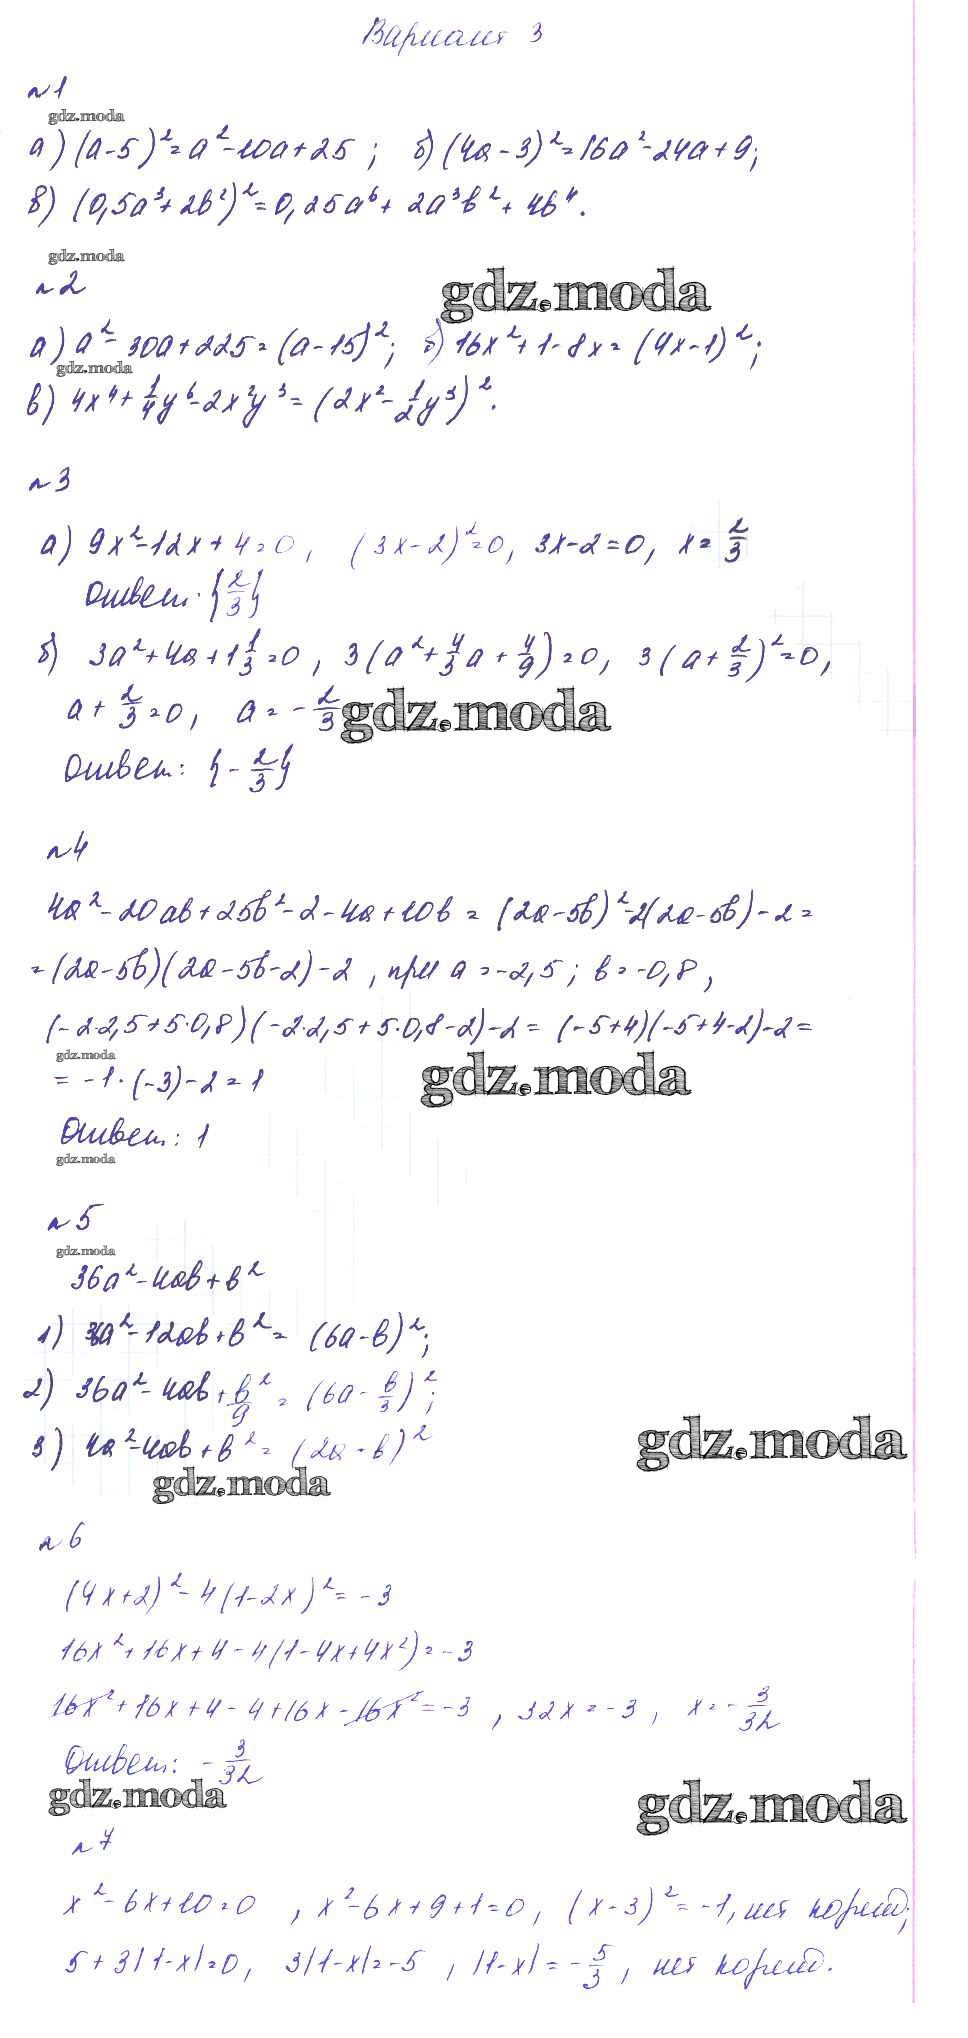 Вариант 3
№1
gdz.moda
а) (a-5)²=a²-10a+25 ; б) (4a-3)²=16a²-24a+9;
в) (0,5a³+2b²)²=0,25a⁶+ 2a³b²+ 4b⁴.
gdz.moda
№2
gdz.moda
а) a²-30a+225=(a-15)²; б) 16x²+1-8x=(4x-1)²;
gdz.moda
в) 4x⁴+1/4y⁶-2x²y³=(2x²-1/2y³)².
№3
а) 9x²-12x+4=0, (3x-2)²=0, 3x-2=0, x=2/3
Ответ: {2/3}
б) 3a²+4a+1 1/3=0, 3(a²+4/3a+4/9)=0, 3(a+2/3)²=0,
a+2/3=0, a=-2/3
gdz.moda
Ответ: {-2/3}
№4
4a²-20ab+25b²-2-4a+10b=(2a-5b)²-2(2a-5b)-2=
=(2a-5b)(2a-5b-2)-2, при a=-2,5; b=-0,8,
(-2·2,5+5·0,8)(-2·2,5+5·0,8-2)-2=(-5+4)(-5+4-2)-2=
gdz.moda
gdz.moda
=-1·(-3)-2=1
Ответ: 1
gdz.moda
№5
gdz.moda
36a²-4ab+b²
1) 36a²-12ab+b²=(6a-b)²;
2) 36a²-4ab+b²/9=(6a-b/3)²;
3) 4a²-4ab+b²=(2a-b)²
gdz.moda
gdz.moda
№6
(4x+2)²-4(1-2x)²=-3
16x²+16x+4-4(1-4x+4x²)=-3
16x²+16x+4-4+16x-16x²=-3, 32x=-3, x=-3/32
Ответ: -3/32
gdz.moda
gdz.moda
№7
x²-6x+10=0, x²-6x+9+1=0, (x-3)²=-1, нет корней;
5+3|1-x|=0, 3|1-x|=-5, |1-x|=-5/3, нет корней.